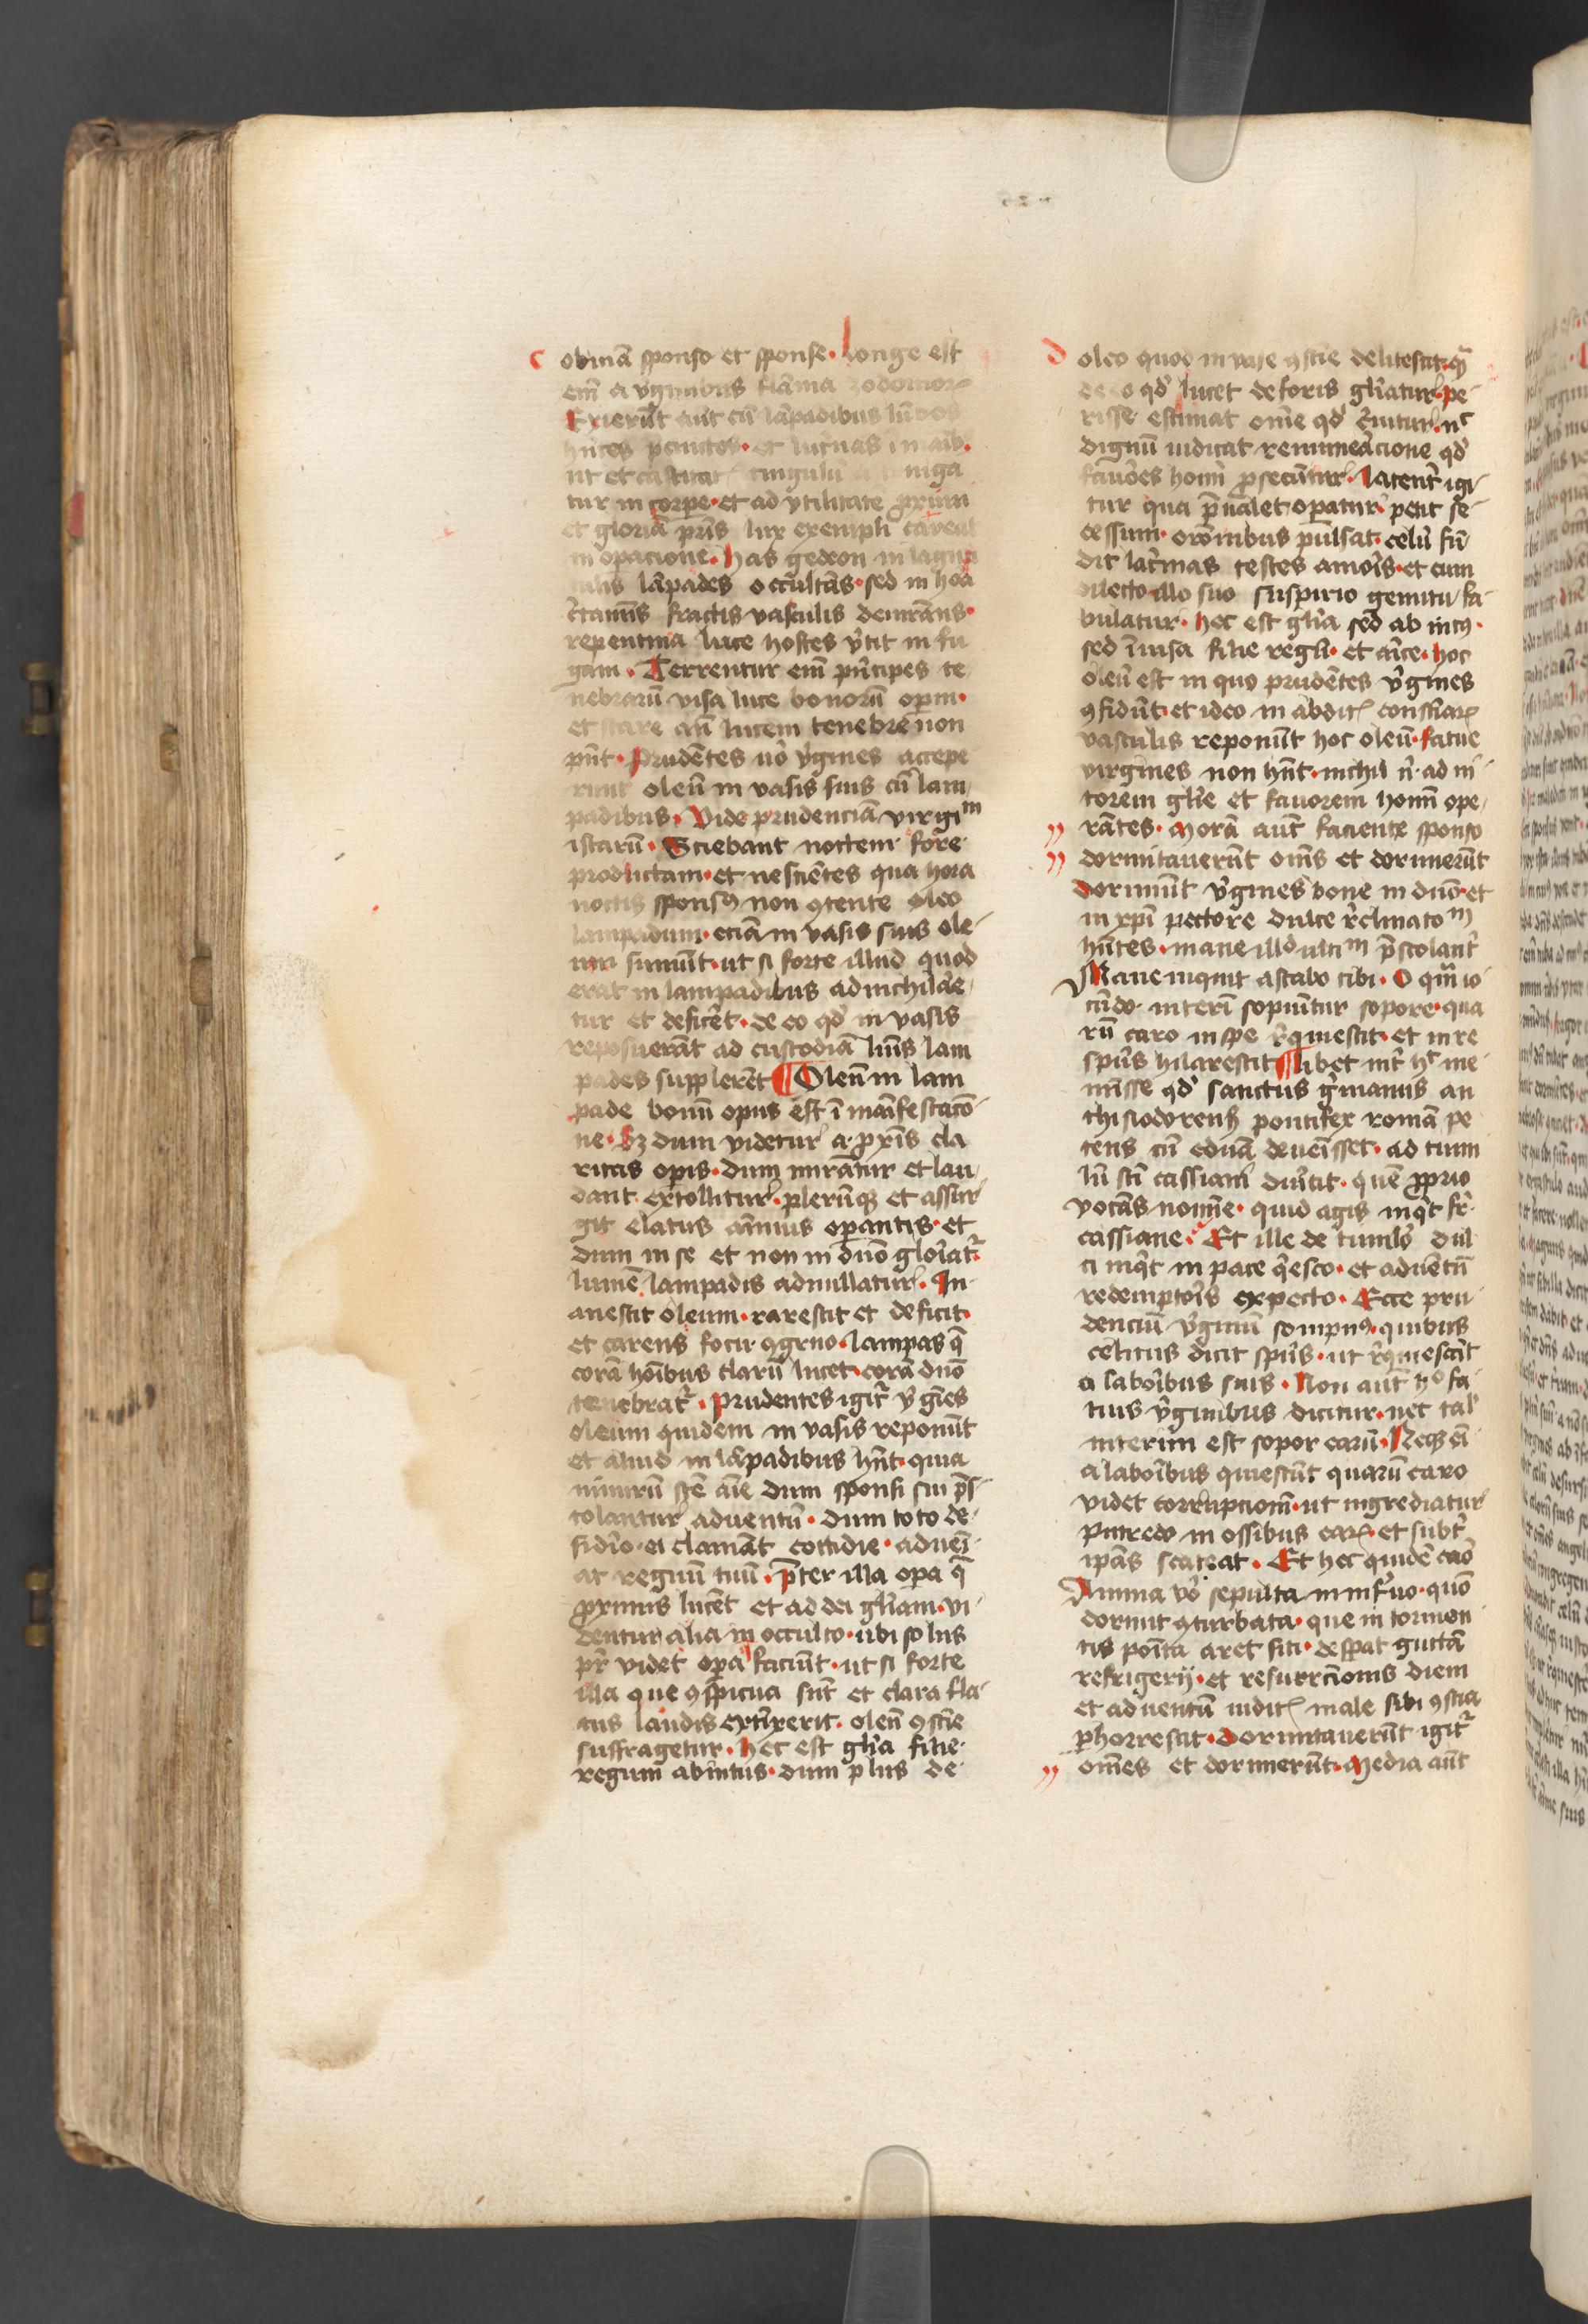 c
obuiā sponso et sponse. Longe est
em̄ a v̓ginibus flāma zodomoꝝ
Exierūt aūt cū lāpadibus lūbos
hn̄tes p̄cinctos. et lucernas in māib.
ut et castitatꝭ cingulū
tur in corpe. et ad vtilitate proximi
et gloriā pr̄is lux exempli careat
in opacione. Has gedeon in lagun
culis lāpades occultās. sed in hora
c̄taminis fractis vasculis denudans.
repentina luce hostes v̓tit in fu
gam. Terrentur em̄ pn̄cipes te
nebrarū visa luce bonorū operm.
et stare an̄ lucem tenebre non
pn̄t. Prudētes uo̓ v̓gines accepe
runt oleū in vasis suis cū lam
padibus. Vide prudenciā virgiᵐ
istarū. Sciebant noctem fore
productam. et nesciētes qua hora
noctis sponsꝰ non ꝯtente oleo
lampadum. eciā in vasis suis ole-
um sumūt. ut si forte illud quod
erat in lampadibus adnichilare-
tur et deficēt. de eo qd̓ in vasis
reposuerāt ad custodiā luīs lam
pades supplerēt ¶ Oleū in lam
pade bonū opus est ī māifestacō-
ne. Sz dum videtur a prox̄is cla
ritas opis. dum mirātur et lau-
dant. extollitur. plerūqꝫ et assur
git elatus ān̄mus operantis. et
dum in se et non in dn̄o gloiat̓.
lumē lampadis adnullatur. In-
anescit oleum. rarescit et deficit.
et carens fotu ꝯgruo. lampas q̄
corā hoībus clarū lucet. corā dn̄o
tenebrat̓. Prudentes igit̓ v̓gīes
oleum quidem in vasis reponūt
et aliud in lāpadibus hn̄t. quia
nimirū scē aīe dum sponsi sui p̄s-
tolantur adventū. dum toto de-
sidīo. ei clamāt cottidie. adveī-
at regnū tuū. p̄ter illa opa q̄
proximis lucēt et ad dei gl̄iam. vi-
dentur alia in occulto. ubi solus
pr̄ videt opa faciūt. ut si forte
illa que ꝯspicua sūt et clara fla-
tus laudis extīxerit. oleū ꝯscīe
suffragetur. Hec est gl̄ia filie-
regum abintus. dum plus de-
d
oleo quod in vase ꝯscīe delitescit. q̄
de eo qd̓ lucet de foris gl̄iatur. pe-
risse estimat om̄e qd̓ c̓nitur. nᶜ
dignū iudicat remuneracione qd̓
favores homī prosecūtur. Latent̓ igi-
tur qua p̄valet operatur. petit se-
cessum. or̄onibus pulsat. celū fū-
dit lac̓mas testes amois. et cum
dilecto illo suo suspirio gemitu fa-
bulatur. hec est gl̄ia sed ab intꝰ.
sed īuisa filie regis. et aīce. hoc
oleū est in quo prudētes v̓gines
ꝯfidūt. et ideo in abditꝭ consciāꝝ
vasculis reponūt hoc oleū. fatue
virgines non hn̄t. nichil n̄. ad ni-
torem gl̄ie et favorem homī ope-
rātes. Morā aūt faciente sponso
dormitaverūt om̄s et dormierūt
dormiūt v̓gines bone in dn̄o. et
in xpi pectore dulce reclinatoᵐ
hn̄tes. mane illd̓ ultiᵐ p̄stolant̓
Mane inquit astabo tibi. O qm̄ io-
cūdo interī sopiūtur sopore. qua
rū caro in spe req̓escit. et in re
spūs hilarescit ¶ libet int̓ hᶜ me-
mīsse qd̓ sanctus g̓manus an
thisiodorens pontifex romā pe
tens cū eduā devēisset. ad tum
lū scī cassiani divtit. quē prprio
vocās nomīe. quid agis inq̓t fr̄.
cassiane. Et ille de tumlo dul
ci inq̓t in pace q̓esco. et adventū
redemptois expecto. Ecce pru-
denciū v̓ginū sompnꝰ. quibus
celitus dicit spūs. ut req̓iescāt
a laboibus suis. Non aūt hᵒ fa-
tuis v̓ginibus dicitur. nec tal
interim est sopor earū. Neqꝫ ei
a laboibus quiescūt quarū caro
videt corrupcionē. ut ingrediatur
putredo in ossibus eaꝝ. et subt̓
ipas scateat. Et hec quidē caro
Anima vo̓ sepulta in inf̓no. quō
dormit ꝯturbata. que in tormen
tis poīta aret siti. despat guttā
refrigerij. et resurrc̄ionis diem
et adventū iudicꝭ male sibi ꝯscia
perhorrescit. Dormitaverūt igit̓
om̄es et dormierūt. Media aūt